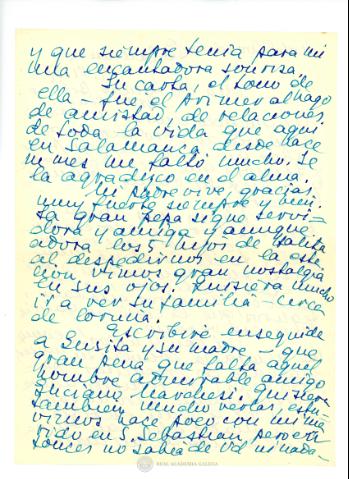 y que siempre tenía para mi
una encantadora sonrisa.
Su carta, el tono de
ella – fue el primer alhago
de amistad, de relaciones
de toda la vida que aquí
en Salamanca desde hace
un mes me faltó mucho. Se
la agradezco en el alma.
Mi padre vive, gracias,
muy fuerte siempre y
la gran Pepa sigue servi-
dora y amiga y aunque
adora los 5 hijos de
al despedirnos en la esta-
ción vimos gran nostalgia
en sus ojos. Quisiera mucho
ir a ver su familia – cerca
de Coruña.
Escribiré enseguida
a Susita y su madre – que
gran pena que falta aquel
hombre admirable amigo
Luciano. Quisiera
también mucho verlas, estu-
vimos hace poco con mi ma-
rido en S. Sebastian, pero en-
tonces no sabía de Vd ni nada –
REAL ACADEMIA GALEGA